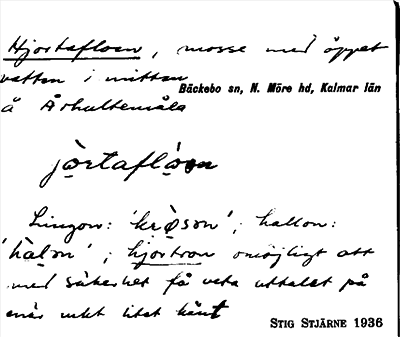 Hjortafloen, mosse med öppet
vatten i mitten
Bäckebo sn, N. Möre hd, Kalmar län
å Århultemåla
jòrtaflóən
Lingon: 'kròsən'; hallon:
'hàlən'; hjortron omöjligt att
med säkerhet få veta uttalet på
enär växt litet känt
STIG STJÄRNE 1936